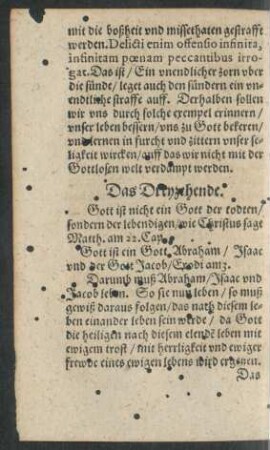 mit die boßheit vnd missethaten gestrafft
werden. Delicti enim offensio infinita,
infinitam pœnam peccantibus irro-
gat. Das ist / Ein vnendlicher zorn vber
die sünde / leget auch den sündern ein vn-
endtliche straffe auff. Derhalben sollen
wir vns durch solche exempel erinnern /
vnser leben bessern / vns zu Gott bekeren /
vnd lernen in furcht vnd zittern vnser se-
ligkeit wircken / auff das wir nicht mit der
Gottlosen welt verdampt werden.
Das Dreyzehende.
Gott ist nicht ein Gott der todten /
sondern der lebendigen / wie Christus sagt
Matth. am 22. Cap.
Gott ist ein Gott Abraham / Isaac
vnd der Gott Jacob / Exodi am 3.
Darumb muß Abraham / Isaac vnd
Jacob leben. So sie nun leben / so muß
gewiß daraus folgen / das nach diesem le-
ben einander leben sein werde / da Gott
die heiligen nach diesem elende leben mit
ewigem trost / mit herrligkeit vnd ewiger
frewde eines ewigen lebens wird ergetzen.
Das